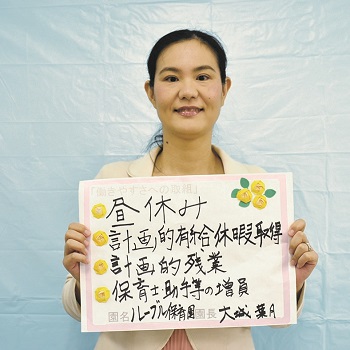 「働きやすさへの取組」
昼休み
計画的有給休暇取得
計画的残業
保育士助手等の増員
園名 ルーブル保育園 園長 大城 葉月